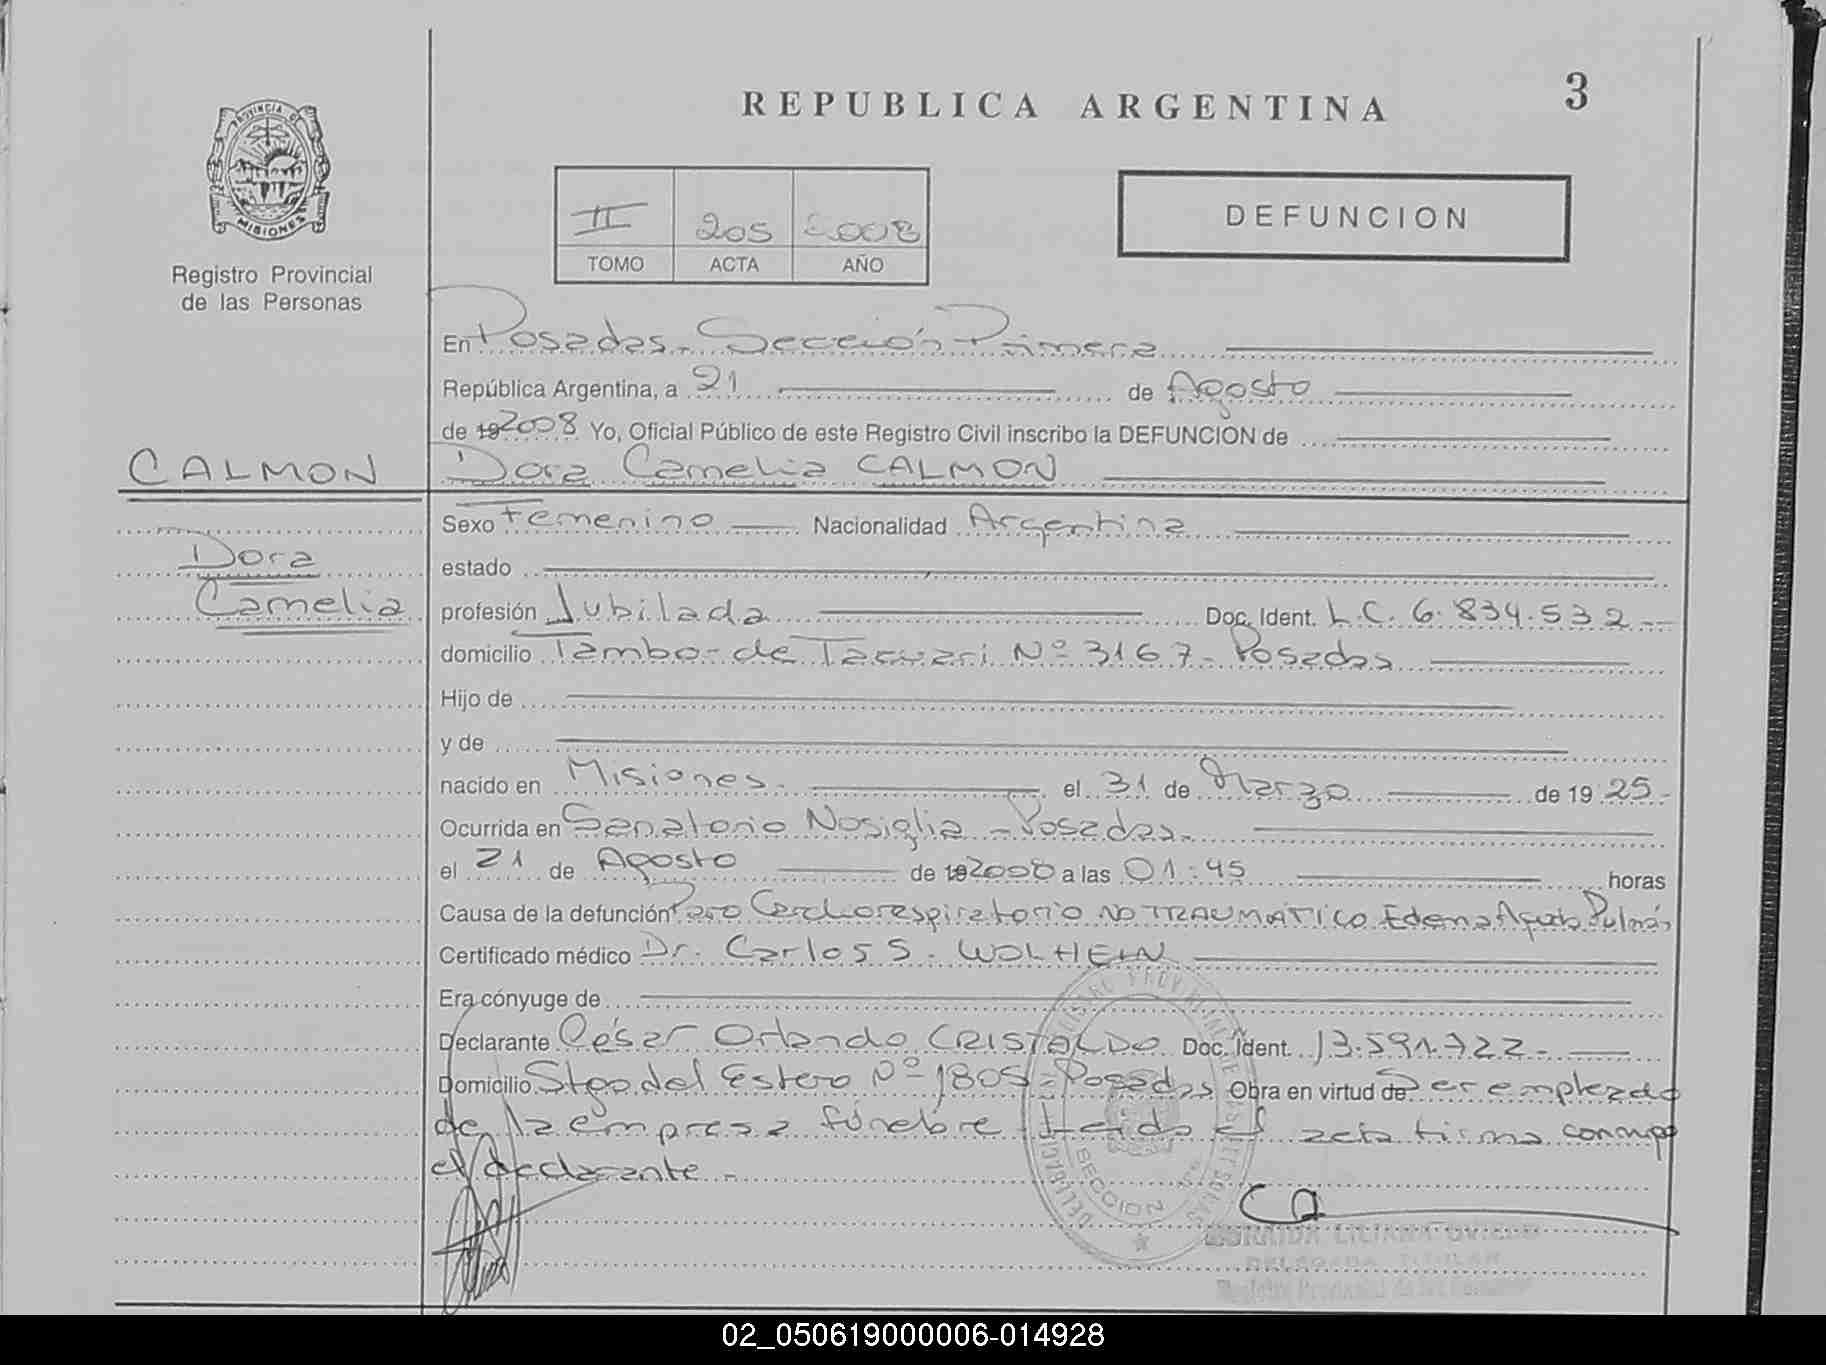 REPUBLICA ARGENTINA
3
PROVINCIA DE
MISIONES
Registro Provincial
de las Personas
II 205 2008
TOMO ACTA AÑO
DEFUNCION
En Posadas - Sección Primera
República Argentina, a 21 de Agosto
de 19 2008 Yo, Oficial Público de este Registro Civil inscribo la DEFUNCION de
CALMON
Dora Camelia CALMON
Dora
Camelia
Sexo Femenino Nacionalidad Argentina
estado
profesión Jubilada Doc. Ident. L.C. 6.834.532
domicilio Tambo de Tacuari Nº 3167 - Posadas
Hijo de
y de
nacido en Misiones. el 31 de Marzo de 19 25.-
Ocurrida en Sanatorio Nosiglia - Posadas.
el 21 de Agosto de 19 2008 a las 01:45 horas
Causa de la defunción Paro Cardiorespiratorio NO TRAUMATICO Edema Agudo Pulmón
Certificado médico Dr. Carlos S. WOLHEIN
Era cónyuge de
Declarante César Orlando CRISTALDO Doc. Ident. 13.591.722.-
Domicilio Stgo. del Estero Nº 1805 - Posadas Obra en virtud de Ser empleado
de la empresa fúnebre leída el acta firma conmigo
el declarante.-
SECCION
LILIANA OVIEDO
DELEGADA TITULAR
Registro Provincial de las Personas
02_050619000006-014928